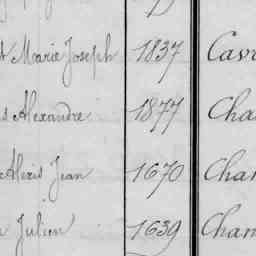 Marie Joseph 1837 Cav
Alexandre 1877 Cha
Alexis Jean 1670 Chan
Julien 1639 Cham